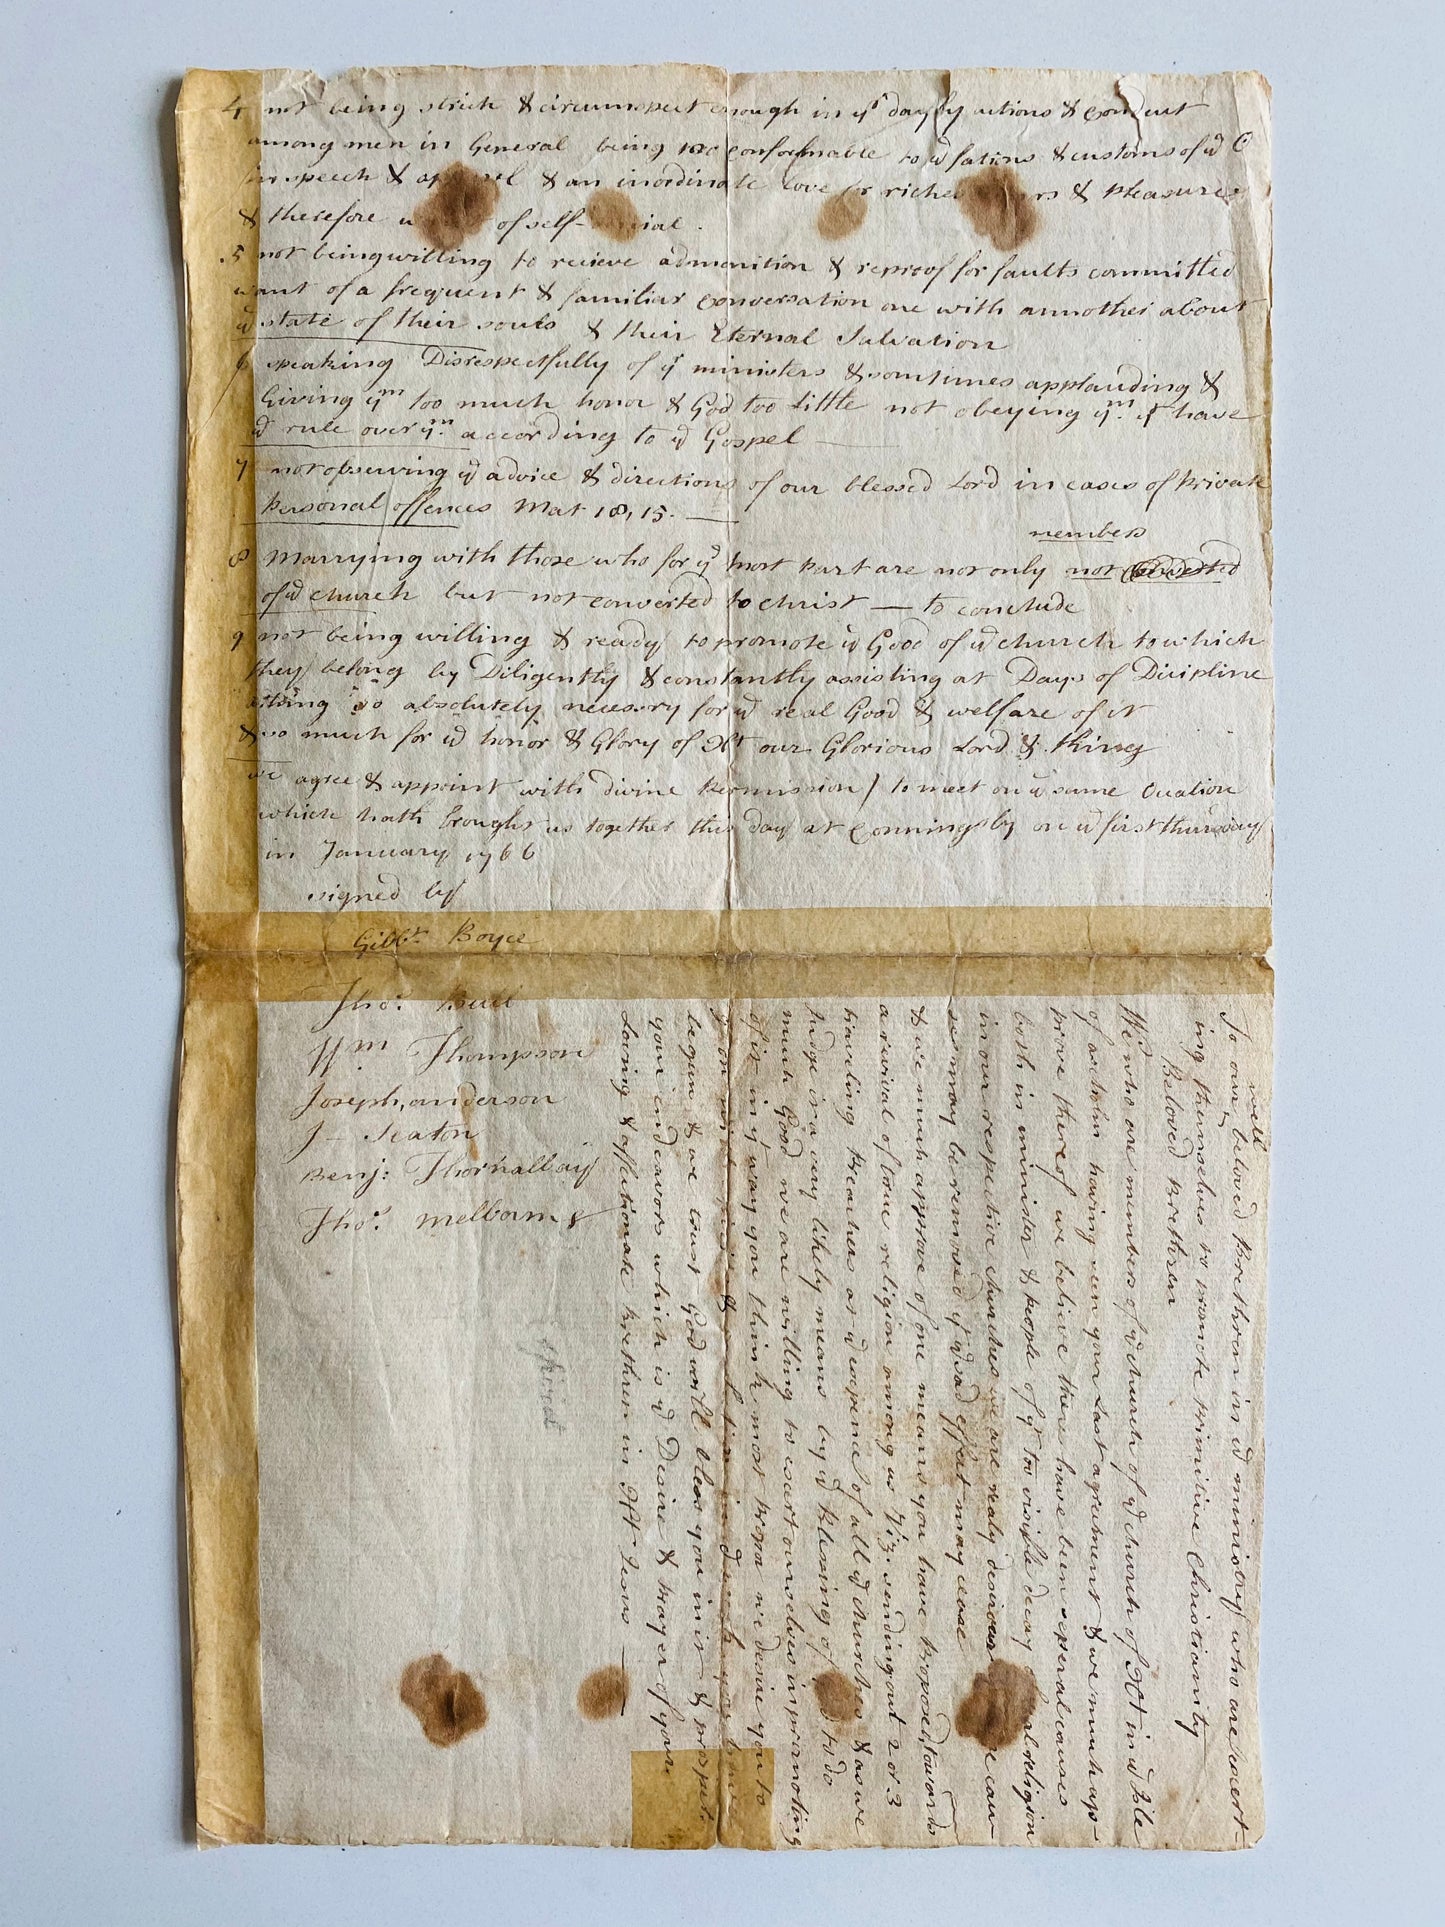 4 not being strick & circumspect enough in yr dayly actions & conduct
among men in General being too conformable to ye fations & customs of ye
in speech & & an inordinate love for & pleasures
& therefore of self-
5 not being willing to recieve admonition & reproof for faults committed
want of a frequent & familiar conversation one with annother about
ye state of their souls & their Eternal Salvation
6 speaking Disrespectfully of yr ministers & sometimes applauding &
Giving ym too much honor & God too little not obeying ym yt have
ye rule over ym according to ye Gospel
7 not observing ye advice & directions of our blessed Lord in cases of private
personal offences Mat 18,15.
members
8 Marrying with those who for ye most part are not only not
of ye church but not converted to christ — to conclude
9 not being willing & ready to promote ye Good of ye church to which
they belong by Diligently & constantly assisting at Days of Dicipline
a thing so absolutely necessry for ye real Good & welfare of it
& so much for ye honor & Glory of Xt our Glorious Lord & King
we agree & appoint with divine permission / to meet on ye same
which hath brought us together this day at Conningsby on ye first thursday
in January 1766
signed by
Gilbt. Boyce
Thos. Bull
Wm Thompson
Joseph anderson
J - Seaton
Benj: Thornallay
Thos. Melbourn
To our well beloved Brethren in ye ministry who are exert-
ing themselves to promote primitive Christianity
Beloved Brethren
We who are members of ye church of ye church of Xt in ye
of having seen your Last agreement & we much ap-
prove thereof we believe there have been several causes
both in minister & people of yt too visible decay religion
in our respective churches we are realy desirous can-
ses may be removed yt ye sad effect may cease
& we much approve of one means you have proposed, towards
a revival of true religion among us Viz. sending out 2 or 3
traveling preachers at ye expence of all ye churches & as we
judge it a very likely means by ye Blessing of to do
much Good we are willing to exert ourselves in promoting
of it in yt way you think most proper we desire you to
in
begun & we trust God will bless you in it & prosper
your indeavors which is ye Desire & prayer of your
Loving & affectionate Brethren in Xt Jesus